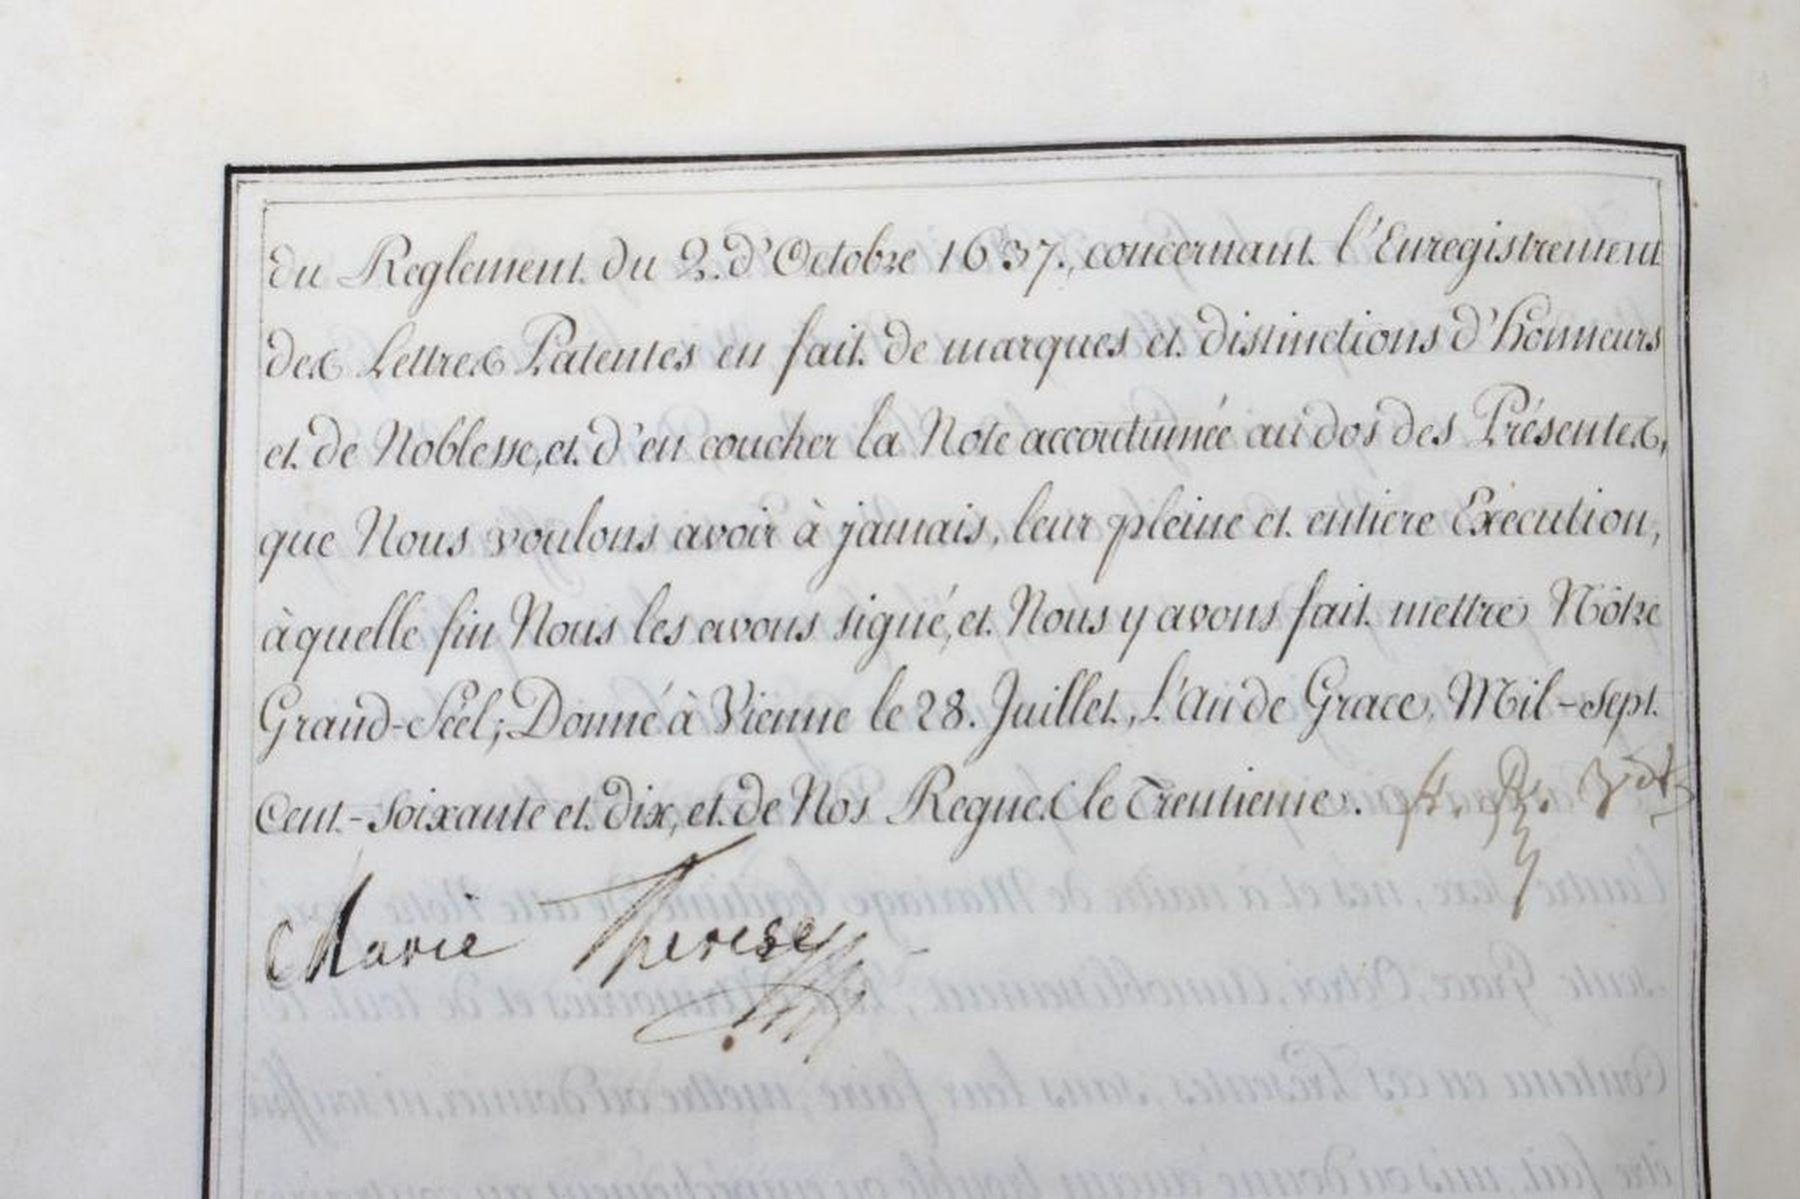 du Reglement du 2. d'Octobre 1637., concernant l'Enregistrement
des Lettres Patentes en fait de marques et distinctions d'honneurs
et de Noblesse, et d'en coucher la Note accoutumée au dos des Présentes,
que Nous voulons avoir à jamais, leur pleine et entiere Execution,
à quelle fin Nous les avons signé, et Nous y avons fait mettre Nôtre
Grand-Séel; Donné à Vienne le 28. Juillet, L'An de Grace, Mil-sept
Cent-Soixante et dix, et de Nos Regnes le Trentieme.
Marie Therese